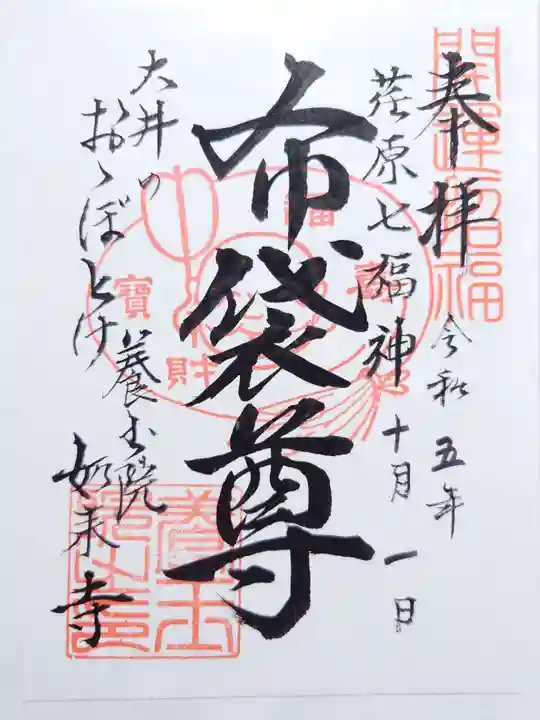 奉拝
令和五年
十月一日
荏原七福神
布袋尊
大井の
おゝぼとけ
養玉院
如来寺
開運招福
福
壽
寶
財